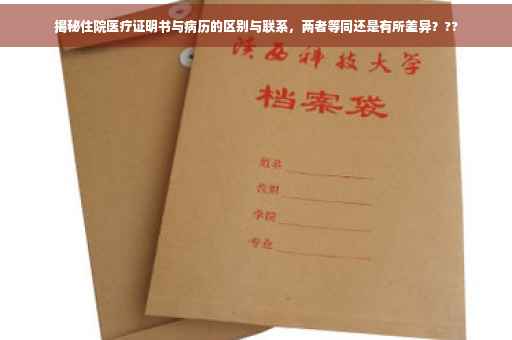 揭秘住院医疗证明书与病历的区别与联系，两者等同还是有所差异？??
陕西科技大学
档案袋
姓名
性别
学院
专业